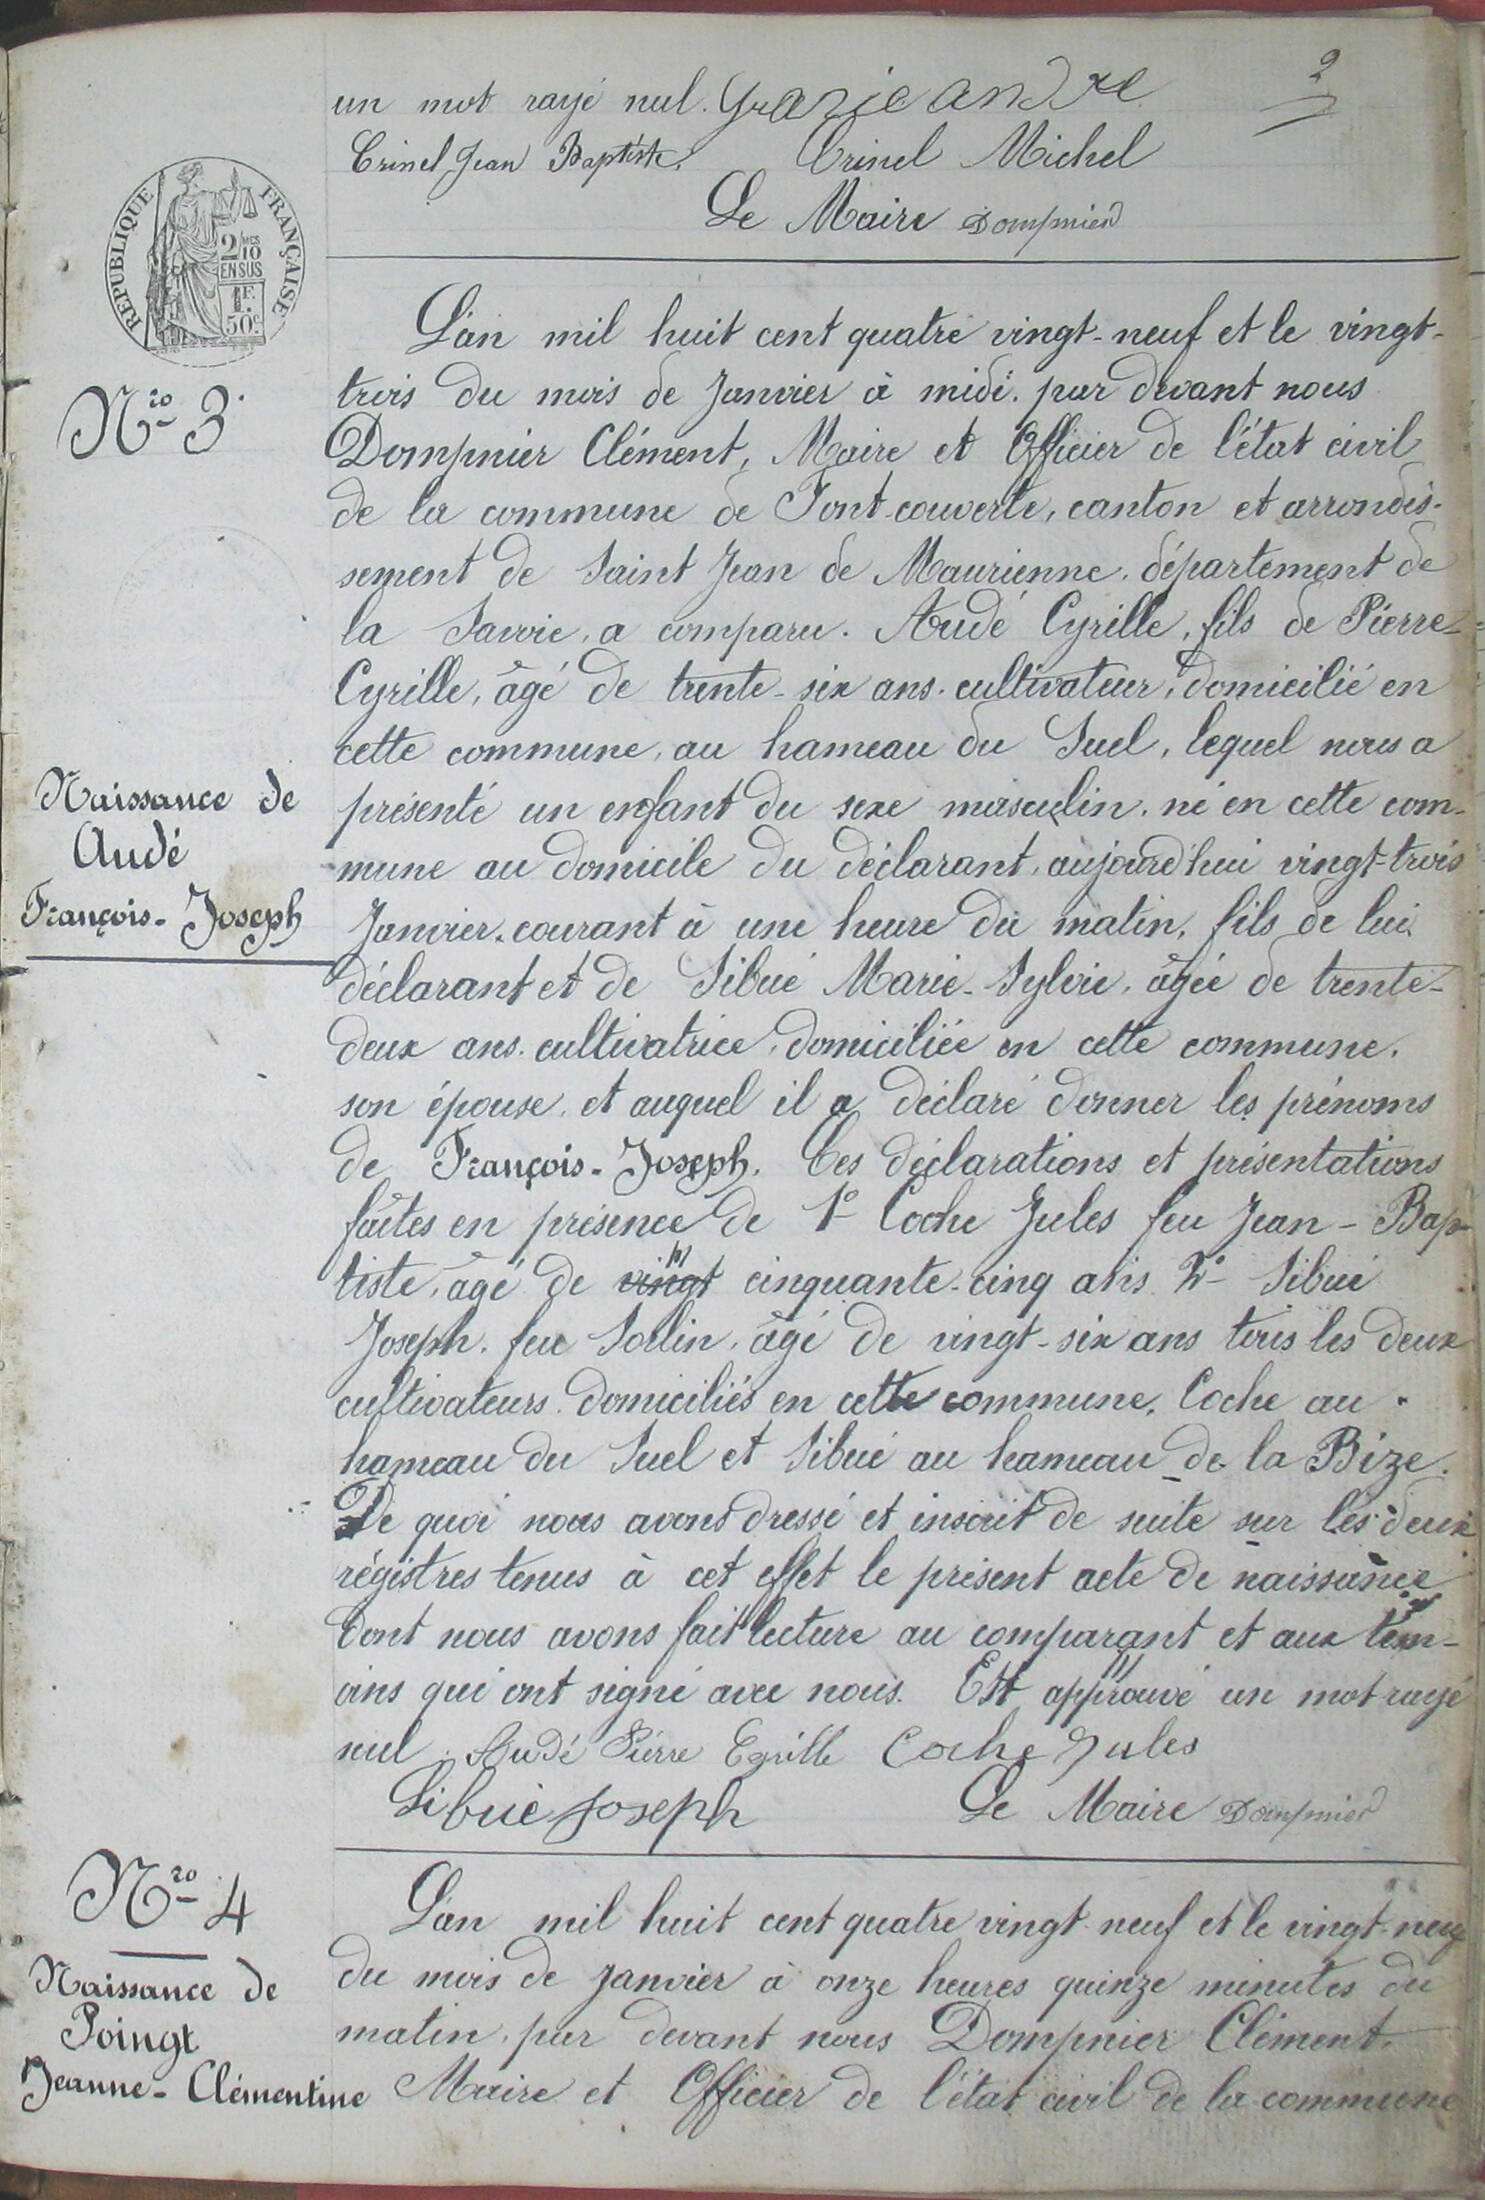 2
un mot rayé nul. Grazie andré
Crinel Jean Baptiste. Crinel Michel
Le Maire Dompnier
REPUBLIQUE FRANÇAISE
2/10 MES
EN SUS
1F.
50c.
Nro 3.
Naissance de
Audé
François-Joseph
L'an mil huit cent quatre vingt-neuf et le vingt-
trois du mois de Janvier à midi. par devant nous
Dompnier Clément, Maire et Officier de l'état civil
de la commune de Font-couverte, canton et arrondis-
sement de Saint Jean de Maurienne, département de
la Savoie, a comparu. Audé Cyrille, fils de Pierre-
Cyrille, âgé de trente-six ans. cultivateur, domicilié en
cette commune, au hameau du Suel, lequel nous a
présenté un enfant du sexe masculin. né en cette com-
mune au domicile du déclarant, aujourd'hui vingt-trois
Janvier, courant à une heure du matin, fils de lui
déclarant et de Sibué Marie-Sylvie, âgée de trente-
deux ans. cultivatrice, domiciliée en cette commune.
son épouse, et auquel il a déclaré donner les prénoms
de François-Joseph. Ces déclarations et présentations
faites en présence de 1° Coche Jules feu Jean-Bap-
tiste, âgé de vingt cinquante-cinq ans 2° Sibué
Joseph. feu Sorlin, âgé de vingt-six ans tous les deux
cultivateurs domiciliés en cette commune, Coche au
hameau du Suel et Sibué au hameau de la Bize.
De quoi nous avons dressé et inscrit de suite sur les deux
régistres tenus à cet effet le présent acte de naissance
dont nous avons fait lecture au comparant et aux tém-
oins qui ont signé avec nous. Est approuvé un mot rayé
nul. Audé Pierre Cyrille Coche Jules
Sibué Joseph Le Maire Dompnier
Nro 4
Naissance de
Poingt
Jeanne-Clémentine
L'an mil huit cent quatre vingt neuf et le vingt-neuf
du mois de janvier à onze heures quinze minutes du
matin, par devant nous Dompnier Clément.
Maire et Officier de l'état civil de la commune